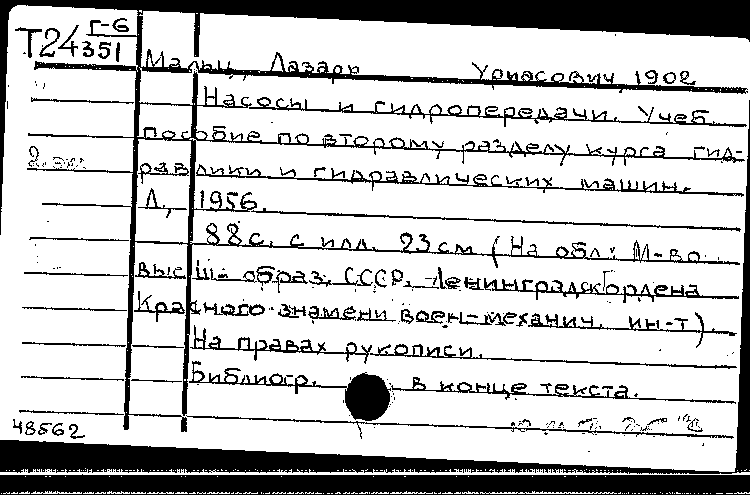 Т24 Г-6
4351
Мальц, Лазарь Урьясович, 1902
Насосы и гидропередачи. Учеб.
пособие по второму разделу курса гид-
2 эк.
равлики и гидравлических машин.
Л., 1956.
88 с. с илл. 23 см (На обл.: М-во
высш. образ. СССР. Ленинградск. ордена
Красного знамени воен-механич. ин-т)
На правах рукописи.
Библиогр. в конце текста.
48562